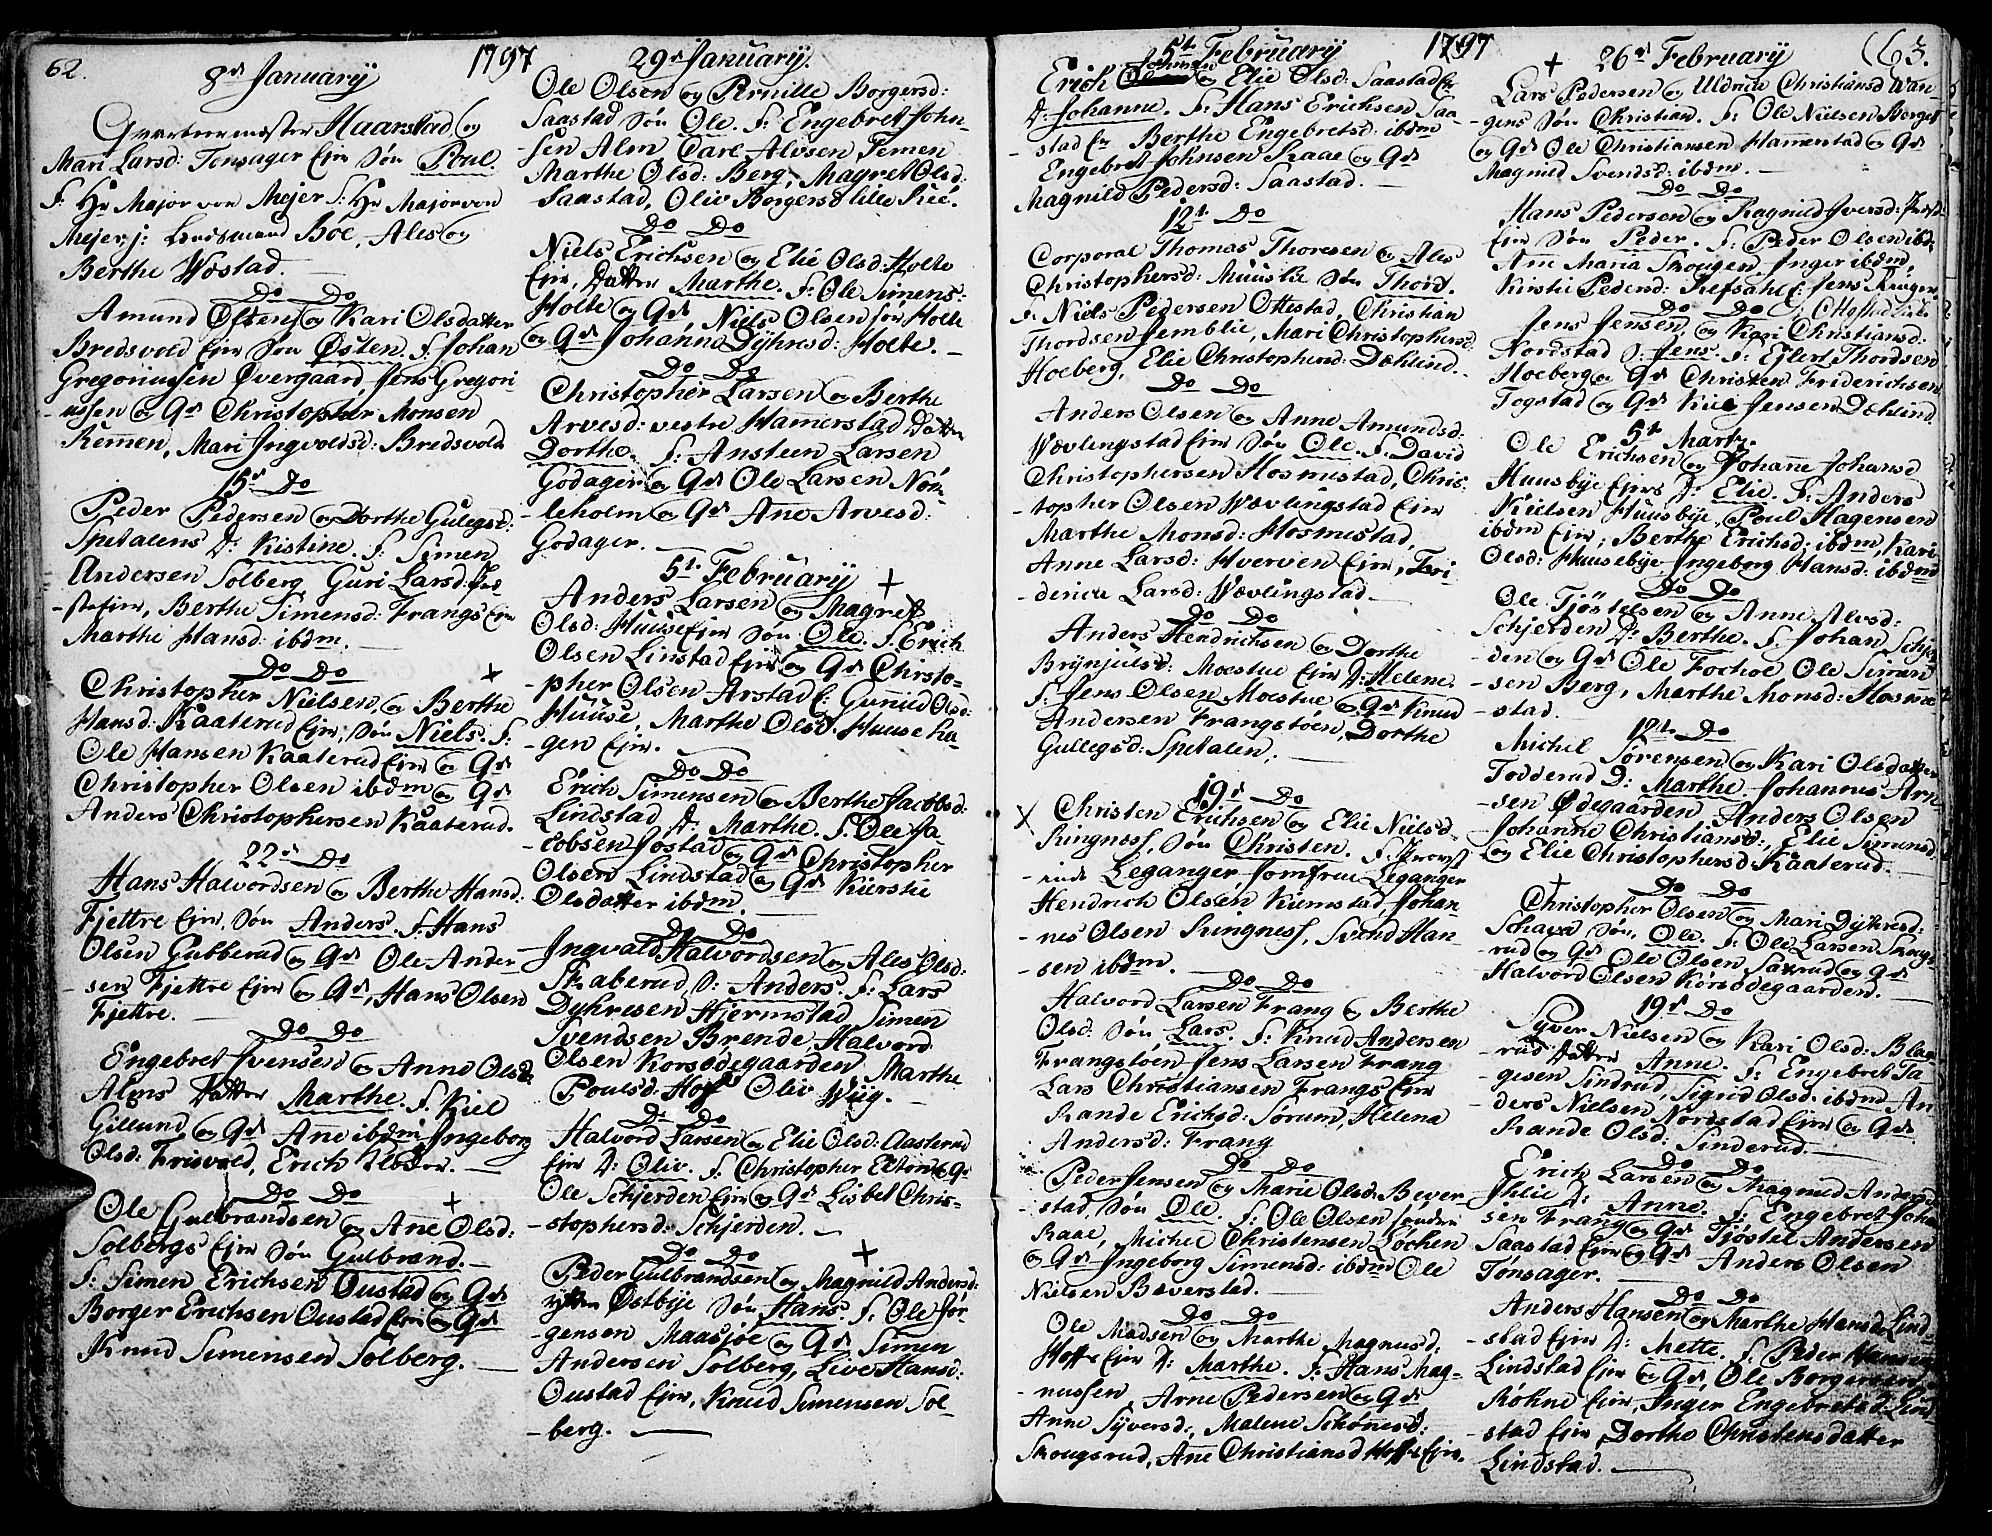 62.
1797
8de Januarij
Qvarteermester Haarstad og
Mari Larsd: Tensager Ejer Søn Poul.
F: Hr Major von Mejer F: Hr Major von
Mejer, j: Lendsmand Böe, Ales og
Berthe Wostad.
Do Do
Amund Østens og Kari Olsdatter
Bredsvold Ejer Søn Østen. F: Johan
Gregoriussen Overgaard Jens Gregori
-ussen og Gds Christopher Monsen
Remmen, Mari Ingvoldsd: Bredsvold
15d Do
Peder Pedersen og Dorthe Gulegsd:
Spetalens D: Kistine. F: Simen
Andersen Solberg Guri Larsd:
Berthe Simensd: Frangs Ejer
Marthe Hansd: ibdm.
Do Do +
Christopher Nielsen og Berthe
Hansd: Kaaterud Ejer, Søn Niels. F:
Ole Hansen Kaaterud Ejer og Gds
Christopher Olsen ibdm og Gds
Anders Christophersen Kaaterud.
22d Do
Hans Halvordsen og Berthe Hansd:
Fjettre Ejer, Søn Anders. F: Hans
Olsen Gubberud og Gds Ole Ander-
-sen Fjettre Ejer og Gds, Hans Olsen
Fjettre.
Do Do
Engebret Ivensen og Anne Olsd:
Alms Datter Marthe. F: Kiel
Gillund og Gds Anne ibdm, Ingeborg
Olsd: Frisvold, Erich
Do Do +
Ole Gulbrandsen og Anne Olsd:
Solbergs Ejer Søn Gulbrand.
F: Simen Erichsen Oustad og Gds
Borger Erichsen Oustad Ejer og Gds
Knud Simensen Solberg.
29d Januarij.
Ole Olsen og Pernille Borgersd:
Saastad Søn Ole. F: Engebret John-
-sen Alm Carl Alvsen Femen
Marthe Olsd: Berg, Magret Olsd:
Saastad, Oliv Borgersd lille Ree.
Do Do
Niels Erichsen og Elie Olsd: Holte
Ejer, Datter Marthe. F: Ole Simens:
Holte og Gds, Niels Olsen Holte
og Gds Johanne Dÿhresd: Holte.
Do Do
Christopher Larsen og Berthe
Arvesd: vestre Hamerstad Datter
Dorthe. F: Ansteen Larsen
Godager og Gds Ole Larsen Nøk-
-leholm og Gds Ane Arvesd:
Godager.
5t Februarij +
Anders Larsen og Magret
Olsd: Huuse Ejer Søn Ole. F: Erich
Olsen Linstad Ejer og Gds Christo-
-pher Olsen Arstad E: Gunnild Olsd:
Huuse, Marthe Olsd: Huuse Ha-
-gen Ejer.
Do Do
Erich Simensen og Berthe Jacobsd:
Lindstad D: Marthe. F: Ole Ja-
-cobsen Jostad og Gds Christopher
Olsen Lindstad og Gds Kierstie
Olsdatter ibdm.
Do Do
Ingvald Halvordsen og Ales Olsd:
Skaberud, S: Anders. F: Lars
Dyhresen Hjermstad Simen
Svendsen Brende Halvord
Olsen Korsødegaarden Marthe
Poulsd: Hoff Oliv Wiig.
Do Do
Halvord Larsen og Elie Olsd: Aasterud
Ejer D: Oliv. F: Christopher Elton og Gds
Ole Schjerden Ejer og Gds Lisbet Chris-
-stophersd: Schjerden.
Do Do +
Peder Gulbrandsen og Magnild Andersd:
Østbije Søn Hans. F: Ole Jør-
-gensen Maasjøe og Gds Simen
Andersen Solberg, Live Hansd:
Oustad Ejer, Knud Simensen Sol-
-berg.
63.
1797
5t Februarij
Erich Johnsen og Elie Olsd: Saastad Ejer
D: Johanne. F: Hans Erichsen Saa-
-stad Ejer Berthe Engebretsd: ibdm
Engebret Johnsen Raae og Gds
Magnild Pedersd: Saastad.
12t Do
Corporal Thomas Thoresen og Ales
Christophersd: Muustie Søn Thord.
F: Niels Pedersen Ottestad, Christian
Thordsen Jemblie, Mari Christophersd:
Hoeberg, Elie Christophersd: Dæhlind.
Do Do
Anders Olsen og Anne Amundsd:
Wævlingstad Ejer Søn Ole. F: David
Christophersen Hosmestad, Chris-
-topher Olsen Wævlingstad Ejer
Marthe Monsd: Hosmestad,
Anne Larsd: Hverven Ejer, Fri-
-derica Larsd: Wævlingstad.
Do Do
Anders Hendrichsen og Dorthe
Brÿnjulsd: Moestue Ejer D: Helene.
F: Jens Olsen Moestue og Gds Knud
Andersen Frangstøen, Dorthe
Gullegsd: Spetalen.
X 19d Do
Christen Erichsen og Elie Nielsd:
Ringness, Søn Christen. F: Provst-
-inde Leganger, Jomfrue Leganger
Hendrich Olsen Kiemstad, Johan-
-nes Olsen Ringness, Svend Han-
-sen ibdm.
Do Do
Halvord Larsen Frang og Berthe
Olsd: Søn Lars. F: Knud Andersen
Frangstøen Jens Larsen Frang
Lars Christiansen Frangs Ejer
Rande Erichsd: Sørum, Helena
Andersd: Frang
Do Do
Peder Jensen og Marie Olsd: Bever-
-stad, Søn Ole. F: Ole Olsen søndre
Raae, Michel Christensen Lochen
og Gds Ingeborg Simensd: ibdm Ole
Nielsen Beverstad.
Do Do
Ole Madsen og Marthe Magnusd:
Hoffs Ejer D: Marthe. F: Hans Mag-
-nussen, Arne Pedersen og Gds
Anne Sÿversd:, Malene Schönesd:
Skougsrud, Anne Christiansd Hoffs Ejer.
+ 26d Februarij
Lars Pedersen og Uldrica Christiansd Wan-
gens Søn Christian. F: Ole Nielsen Berget
og Gds Ole Christiansen Hamerstad og Gds
Magnild Svendsd: ibdm.
Do Do
Hans Pedersen og Ragnild Iversd:
Ejer Søn Peder. F: Peder Olsen ibd:
Anne Maria Skougen, Inger ibdm,
Kirstie Pedersd: Refsahl E: Jens
Do Do
Jens Jensen og Kari Christiansd:
Nordstad S: Jens. F: Ejlert Thordsen
Hoeberg og Gds Christen Friderichsen
Togstad og Gds Kiel Jensen Dæhlind.
5t Marty.
Ole Erichsen og Johanne Johansd
Huusbÿe Ejers D: Elie. F: Anders
Nielsen Huusbÿe, Poul Hagensen
ibdm Ejer, Berthe Erichsd: ibdm, Kari
Olsd: Huusebÿe Ingeborg Hansd: ibdm
Do Do
Ole Tjöstelsen og Anne Alvsd:
Schjerden D: Berthe. F: Johan Schjer
den og Gds Ole Fochoe Ole Simen
-sen Berg, Marthe Monsd: Hosme
-stad.
12t Do
Michel Sørensen og Kari Olsdatter
Todderud D: Marthe. Johannes Arn
-sen Ødegaarden Anders Olsen
Johanne Christiansd:, Elie Simensd:
og Elie Christophersd Kaaterud.
+ Do Do
Christopher Olsen og Mari Dÿhresd:
Schava Søn, Ole. F: Ole Larsen Skougs-
rud og Gds Ole Olsen Saxrud og Gds
Halvord Olsen Korsødegaarden.
19d Do
Syver Nielsen og Kari Olsd: Blag-
-rud Datter Anne. F: Engebret Ta-
-gesen Sindrud, Sigrid Olsd: ibdm An
-ders Nielsen Nordstad Ejer og Gds
Rande Olsd: Sinderud.
Do Do
Erich Larsen og Magnild Andersd
Ihlie D: Anne. F: Engebret Johan
sen Frang og Gds Tjöstel Andersen
Saastad Ejer og Gds Anders Olsen
Tönsager.
Do Do
Anders Hansen og Marthe Hansd: Lind-
-stad Ejer D: Mette. F: Peder Hansen
Lindstad Ejer og Gds, Ole Borgersen
Røhne Ejer, Inger Engebretsd: Lind
-stad Ejer, Dorthe Christensdatter
Lindstad.